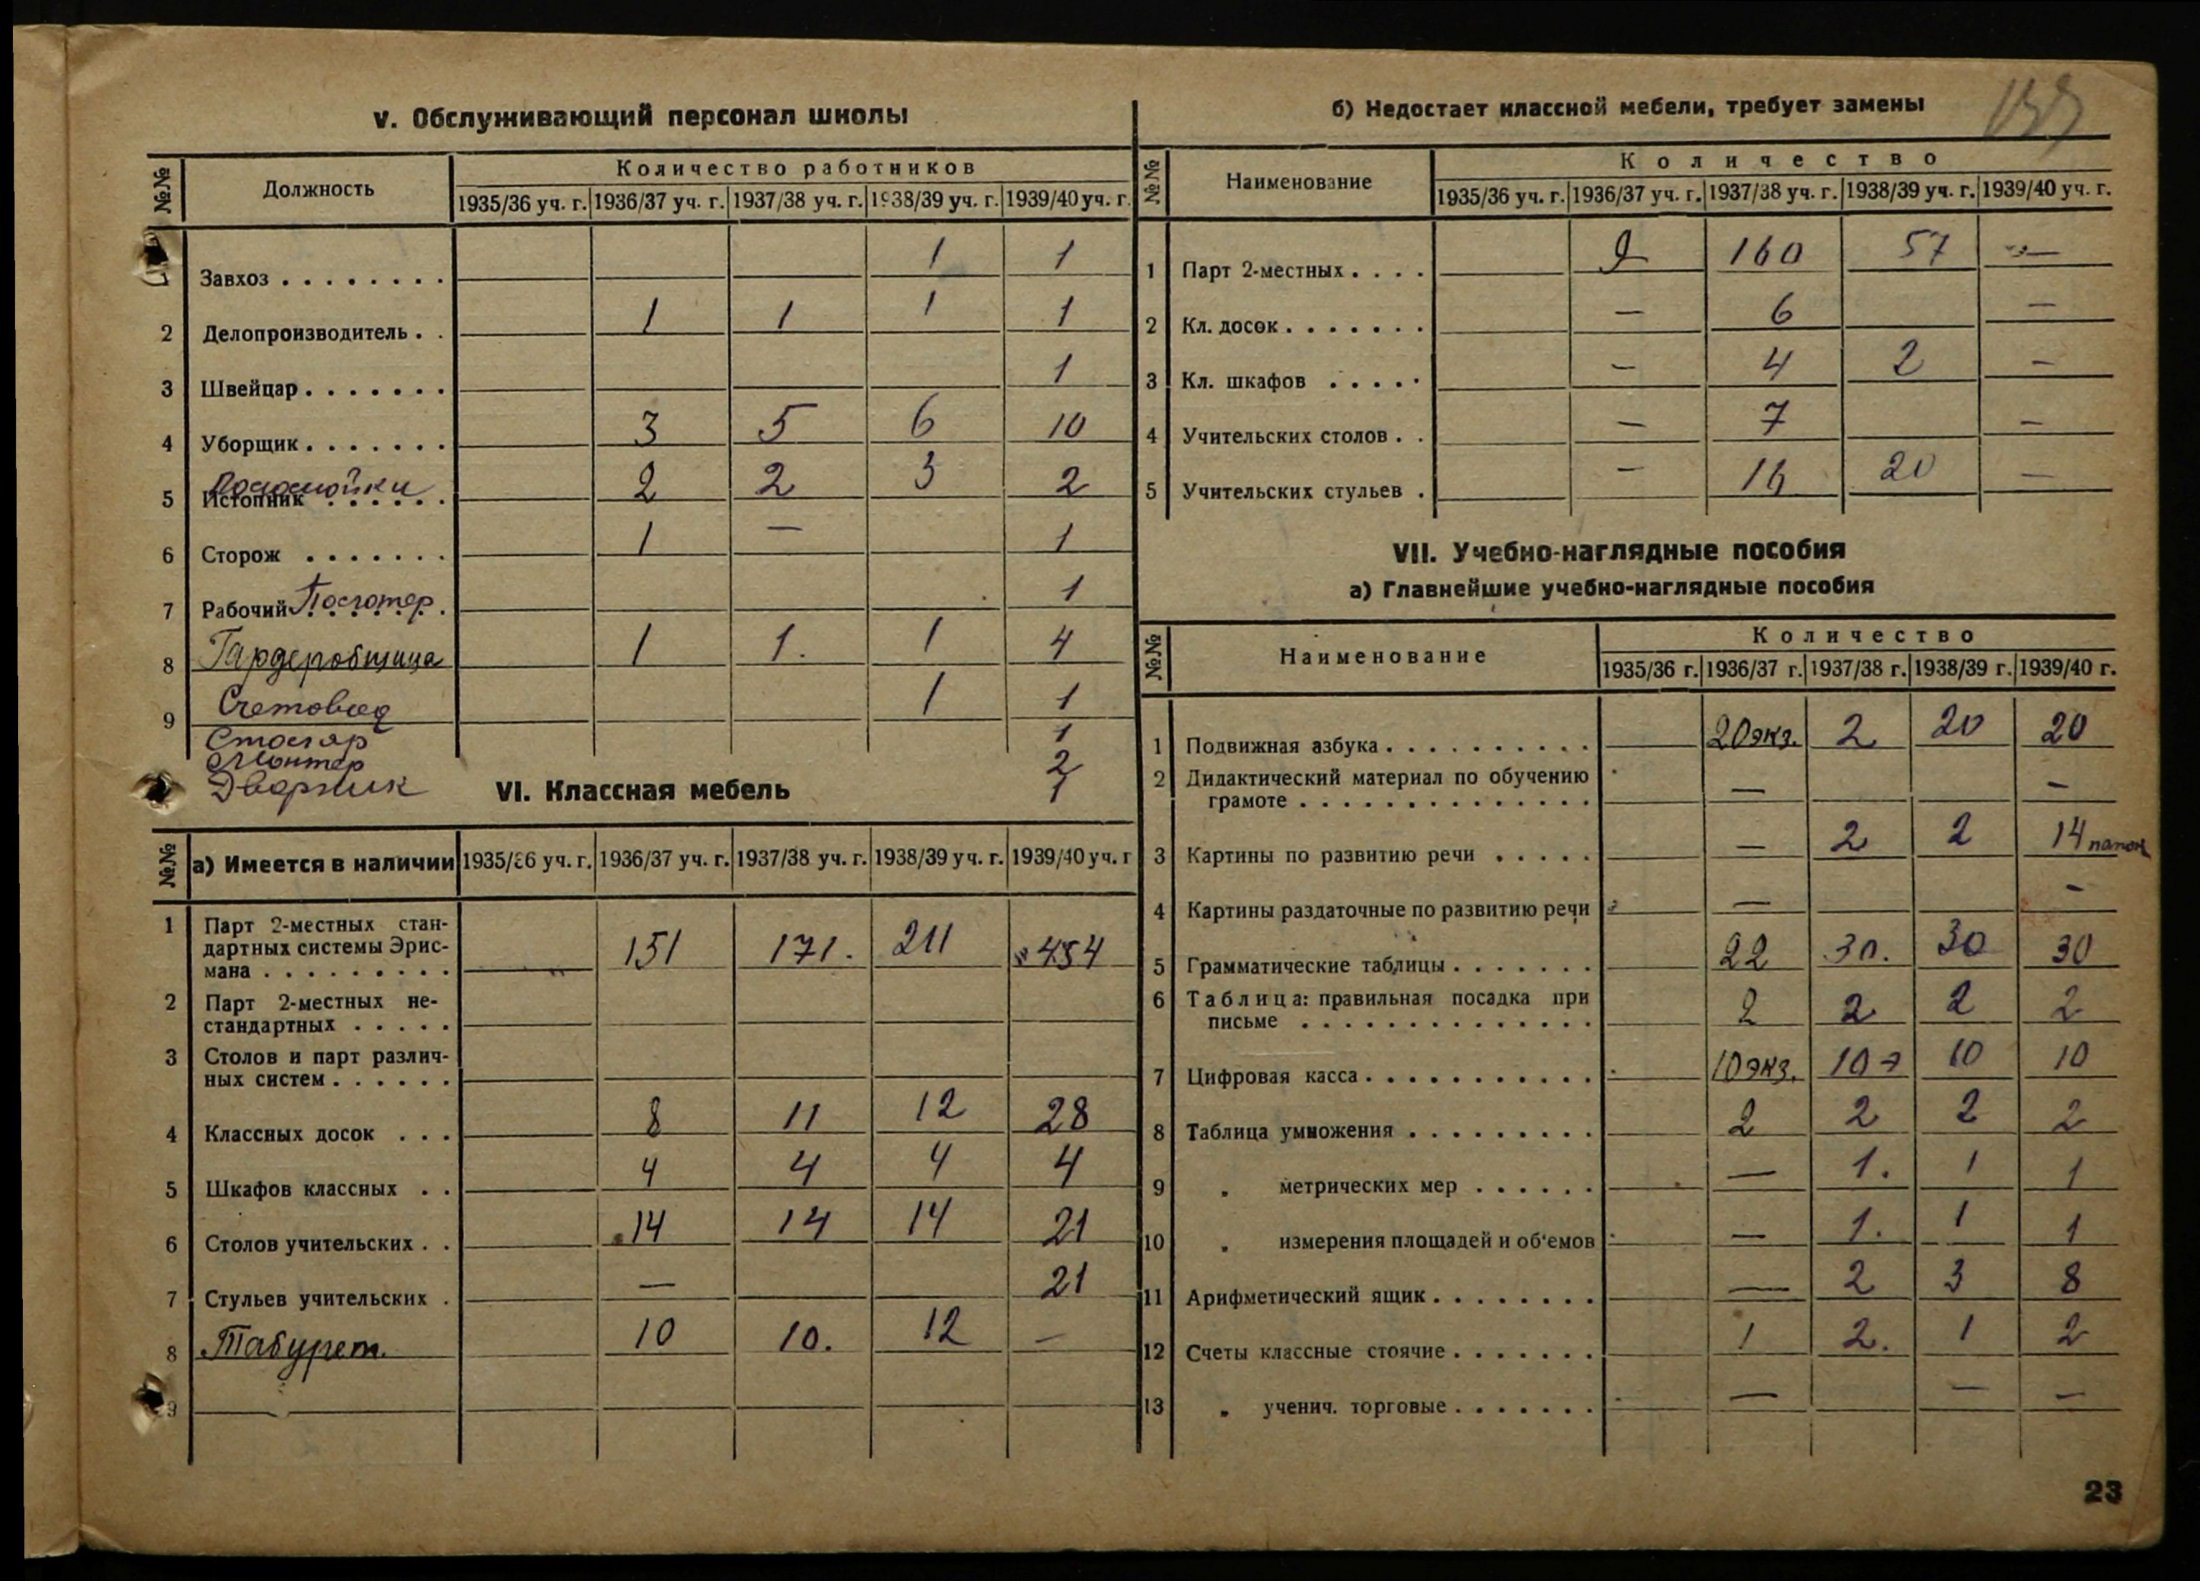 V. Обслуживающий персонал школы
№№ Должность Количество работников
1935/36 уч. г. 1936/37 уч. г. 1937/38 уч. г. 1938/39 уч. г. 1939/40 уч. г.
Завхоз . . . . . . . . 1 1
2 Делопроизводитель . . 1 1 1 1
3 Швейцар . . . . . . . 1
4 Уборщик . . . . . . . 3 5 6 10
5 Истопник . . . . . . 2 2 3 2
6 Сторож . . . . . . . 1 — 1
7 Рабочий 1
8 Гардеробщица 1 1. 1 4
9 Счетовод 1 1
Столяр 1
Монтер 2
Дворник 1
VI. Классная мебель
№№ а) Имеется в наличии 1935/36 уч. г. 1936/37 уч. г. 1937/38 уч. г. 1938/39 уч. г. 1939/40 уч. г
1 Парт 2-местных стан-
дартных системы Эрис-
мана . . . . . . . . . 151 171. 211 454
2 Парт 2-местных не-
стандартных . . . . .
3 Столов и парт различ-
ных систем . . . . . .
4 Классных досок . . . 8 11 12 28
5 Шкафов классных . . 4 4 4 4
6 Столов учительских . . 14 14 14 21
7 Стульев учительских . — 21
8 Табурет. 10 10. 12 —
9
б) Недостает классной мебели, требует замены
№№ Наименование Количество
1935/36 уч. г. 1936/37 уч. г. 1937/38 уч. г. 1938/39 уч. г. 1939/40 уч. г.
1 Парт 2-местных . . . . 160 57 —
2 Кл. досок . . . . . . . — 6 —
3 Кл. шкафов . . . . . — 4 2 —
4 Учительских столов . . — 7 —
5 Учительских стульев . — 16 20 —
VII. Учебно-наглядные пособия
а) Главнейшие учебно-наглядные пособия
№№ Наименование Количество
1935/36 г. 1936/37 г. 1937/38 г. 1938/39 г. 1939/40 г.
1 Подвижная азбука . . . . . . . . . . 20 экз. 2 20 20
2 Дидактический материал по обучению
грамоте . . . . . . . . . . . . . . — —
3 Картины по развитию речи . . . . . — 2 2 14 папок
4 Картины раздаточные по развитию речи — —
5 Грамматические таблицы . . . . . . . 22 30. 30 30
6 Таблица: правильная посадка при
письме . . . . . . . . . . . . . . 2 2 2 2
7 Цифровая касса . . . . . . . . . . . 10 экз. 10 э 10 10
8 Таблица умножения . . . . . . . . . 2 2 2 2
9 „ метрических мер . . . . . . — 1. 1 1
10 „ измерения площадей и об'емов — 1. 1 1
11 Арифметический ящик . . . . . . . . — 2 3 8
12 Счеты классные стоячие . . . . . . . 1 2. 1 2
13 „ ученич. торговые . . . . . . . — — —
23